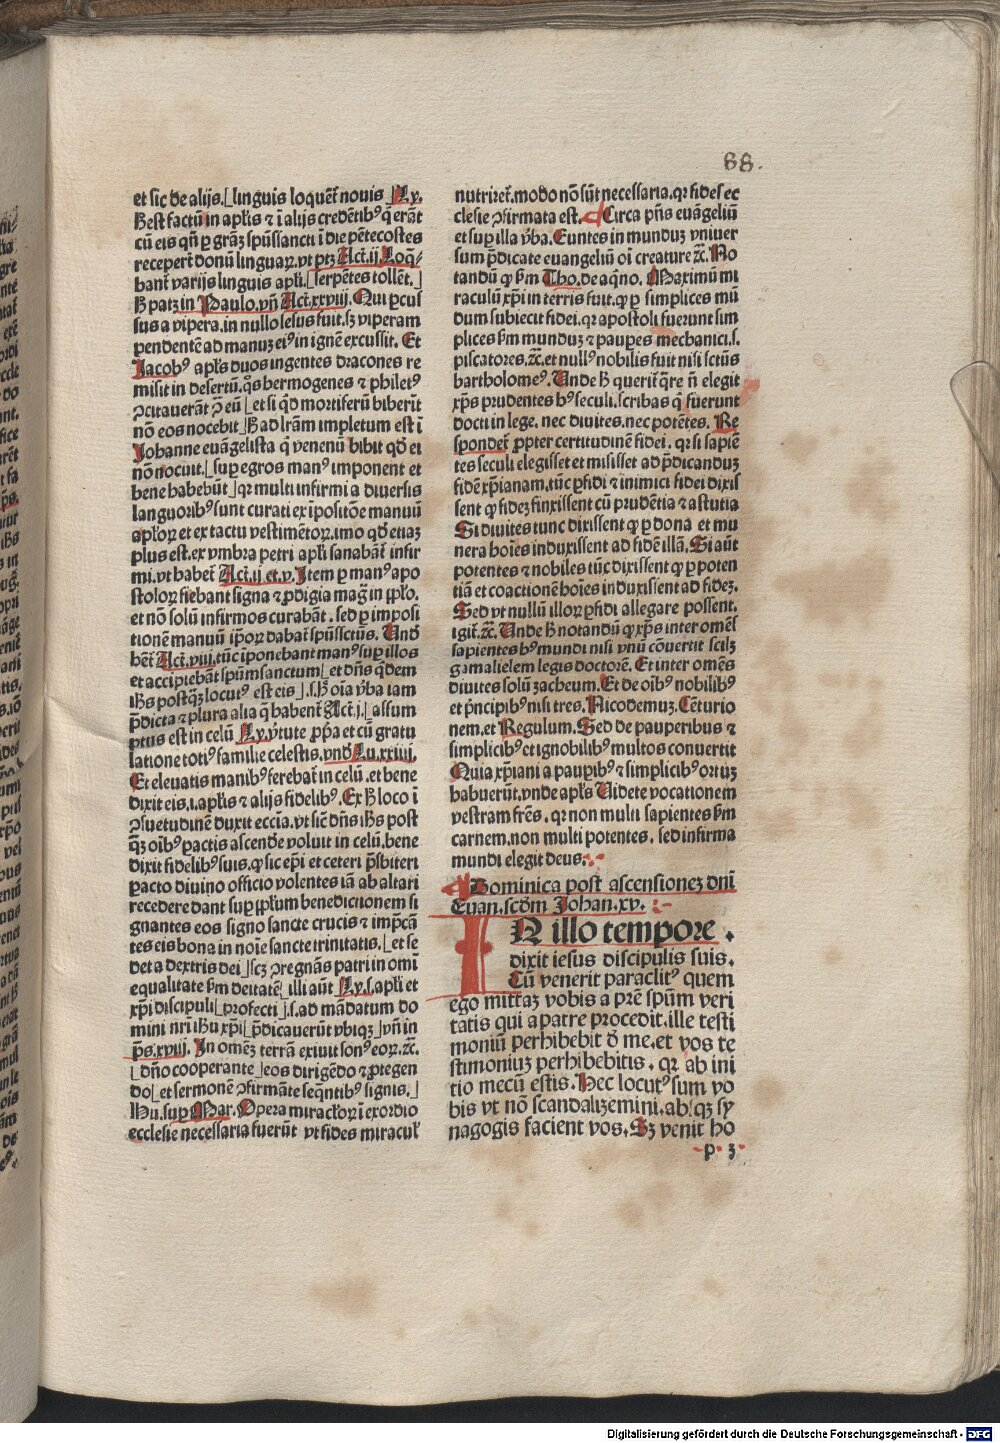 88.
et sic de alijs. linguis loquent̄ nouis Ly.
hest factū in apl̄is ⁊ ī alijs credētibꝰ q̄ erāt
cū eis qn̄ ꝑ grāz spūssancti ī die pētecostes
recepert̄ donū linguaꝝ. vt ptꝫ Act̄. ij. Loq̄-
bant̄ varijs linguis apl̄i. serpētes tollēt.
H̄ patꝫ in Paulo. vn̄ Act̄. xxviij. Qui ꝑcus
sus a vipera. in nullo lesus fuit. sꝫ viperam
pendentē ad manuꝫ eiꝰ in ignē excussit. Et
Jacobꝰ apl̄s duos ingentes dracones re
misit in desertū. q̄s hermogenes ⁊ philetꝰ
ꝯcitauerāt ꝯ̄ eū et si qd̄ mortiferū biberīt
nō eos nocebit H̄ ad lr̄am impletum est ī
Johanne euāgelista q̄ venenū bibit qd̄ ei
nō nocuit. suꝑ egros manꝰ imponent et
bene habebūt qꝛ multi infirmi a diuersis
langoribꝰ sunt curati ex īpositōe manuū
apl̄oꝝ et ex tactu vestimētoꝝ. imo qd̄ etiaꝫ
plus est. ex vmbra petri apl̄i sanabāt̄ infir
mi. vt habet̄ Act̄. ij. et. v. Item ꝑ manꝰ apo
stoloꝝ fiebant signa ⁊ ꝓdigia mag̃ in ppl̄o.
et nō solū infirmos curabāt. sed ꝑ imposi
tionē manuū ip̄oꝝ dabat̄ spūssctūs. Vnd̄
hēt̄ Act̄. viij. tūc īponebant manꝰ suꝑ illos
et accipiebāt spūmsanctum et dn̄s q̄dem
ih̄s postq̄ꝫ locutꝰ est eis .s. h̄ oīa v̄ba iam
p̄dicta ⁊ plura alia q̄ habent̄ Act̄. j. assum
ptus est in celū Ly. v̄tute ꝓp̄a et cū gratu
latione totiꝰ familie celestis. vnd̄ Lu. xxiiij.
Et eleuatis manibꝰ ferebat̄ in celū. et bene
dixit eis. i. apl̄is ⁊ alijs fidelibꝰ. Ex h̄ loco ī
ꝯsuetudinē duxit eccīa. vt sic̄ dn̄s ih̄s post
q̄ꝫ oībꝰ pactis ascende voluit in celū. bene
dixit fidelibꝰ suis. qꝫ sic ep̄i et ceteri p̄sbiteri
ꝑacto diuino officio volentes iā ab altari
recedere dant suꝑ ppl̄um benedictionem si
gnantes eos signo sancte crucis ⁊ imp̄cā
tes eis bona in noīe sancte trinitatis. et se
det a dextris dei scꝫ ꝯregnās patri in omī
equalitate ẜm deitatē illi aūt Ly. s. apl̄i et
xp̄i discipuli profecti .s. ad mādatum do
mini nr̄i ih̄u xp̄i p̄dicauerūt vbiqꝫ vn̄ in
p̄s. xviij. In omēꝫ terrā exiuit sonꝰ eoꝝ. ⁊c̄.
dn̄o cooperante eos dirigēdo ⁊ ꝓtegen
do et sermonē ꝯfirmāte seq̄ntibꝰ signis.
Hu. suꝑ Mar. Opera miracl̄oꝝ ī exordio
ecclesie necessaria fuerūt vt fides miracul̄
nutriret̄. modo nō sūt necessaria. qꝛ fides ec
clesie ꝯfirmata est. Circa p̄ns euāgeliū
et suꝑ illa v̄ba. Euntes in munduꝫ vniuer
sum p̄dicate euangeliū oī creature ⁊c̄. No
tandū qꝫ ẜm Tho. de aqno. Maximū mi
raculū xp̄i in terris fuit. qꝫ ꝑ simplices mū
dum subiecit fidei. qꝛ apostoli fuerunt sim
plices ẜm munduꝫ ⁊ pauꝑes mechanici. s.
piscatores. ⁊c̄. et nullꝰ nobilis fuit nisi sctūs
bartholomeꝰ. Vnde h̄ querit̄ q̄re n̄ elegit
xp̄s prudentes hꝰ seculi. scribas q̄ fuerunt
docti in lege. nec diuites. nec potētes. Re
spondet̄ ꝓpter certitudinē fidei. qꝛ si sapiē
tes seculi elegisset et misisset ad p̄dicanduꝫ
fidē xp̄ianam. tūc ꝑfidi ⁊ inimici fidei dixis
sent qꝫ fideꝫ finxissent cū prudētia ⁊ astutia
Si diuites tunc dixissent qꝫ ꝑ dona et mu
nera hoīes induxissent ad fidē illā. Si aūt
potentes ⁊ nobiles tūc dixissent qꝫ ꝑ poten
tiā et coactionē hoīes induxissent ad fideꝫ.
Sed vt nullū illoꝝ ꝑfidi allegare possent.
igit̄. ⁊c̄. Unde h̄ notandū qꝫ xp̄s inter omēs
sapientes hꝰ mundi nisi vnū cōuertit scilꝫ
gamalielem legis doctorē. Et inter omēs
diuites solū zacheum. Et de oībꝰ nobilibꝰ
et p̄ncipibꝰ nisi tres. Nicodemuꝫ. Cēturio
nem. et Regulum. Sed de pauperibus ⁊
simplicibꝰ et ignobilibꝰ multos conuertit
Quia xp̄iani a pauꝑibꝰ ⁊ simplicibꝰ ortuꝫ
habuerūt. vnde apl̄s Videte vocationem
vestram frēs. qꝛ non multi sapientes ẜm
carnem. non multi potentes. sed infirma
mundi elegit deus.
Dominica post ascensioneꝫ dn̄i
Euan. scd̄m Johan. xv.
IN illo tempore.
dixit iesus discipulis suis.
Cū venerit paraclitꝰ quem
ego mittaꝫ vobis a prē spūm veri
tatis qui a patre procedit. ille testi
moniū perhibebit d̄ me. et vos te
stimoniuꝫ perhibebitis. qꝛ ab ini
tio mecū estis. Hec locutꝰ sum vo
bis vt nō scandalizemini. absqꝫ sy
nagogis facient vos. Sꝫ venit ho
p 3
Digitalisierung gefördert durch die Deutsche Forschungsgemeinschaft - DFG